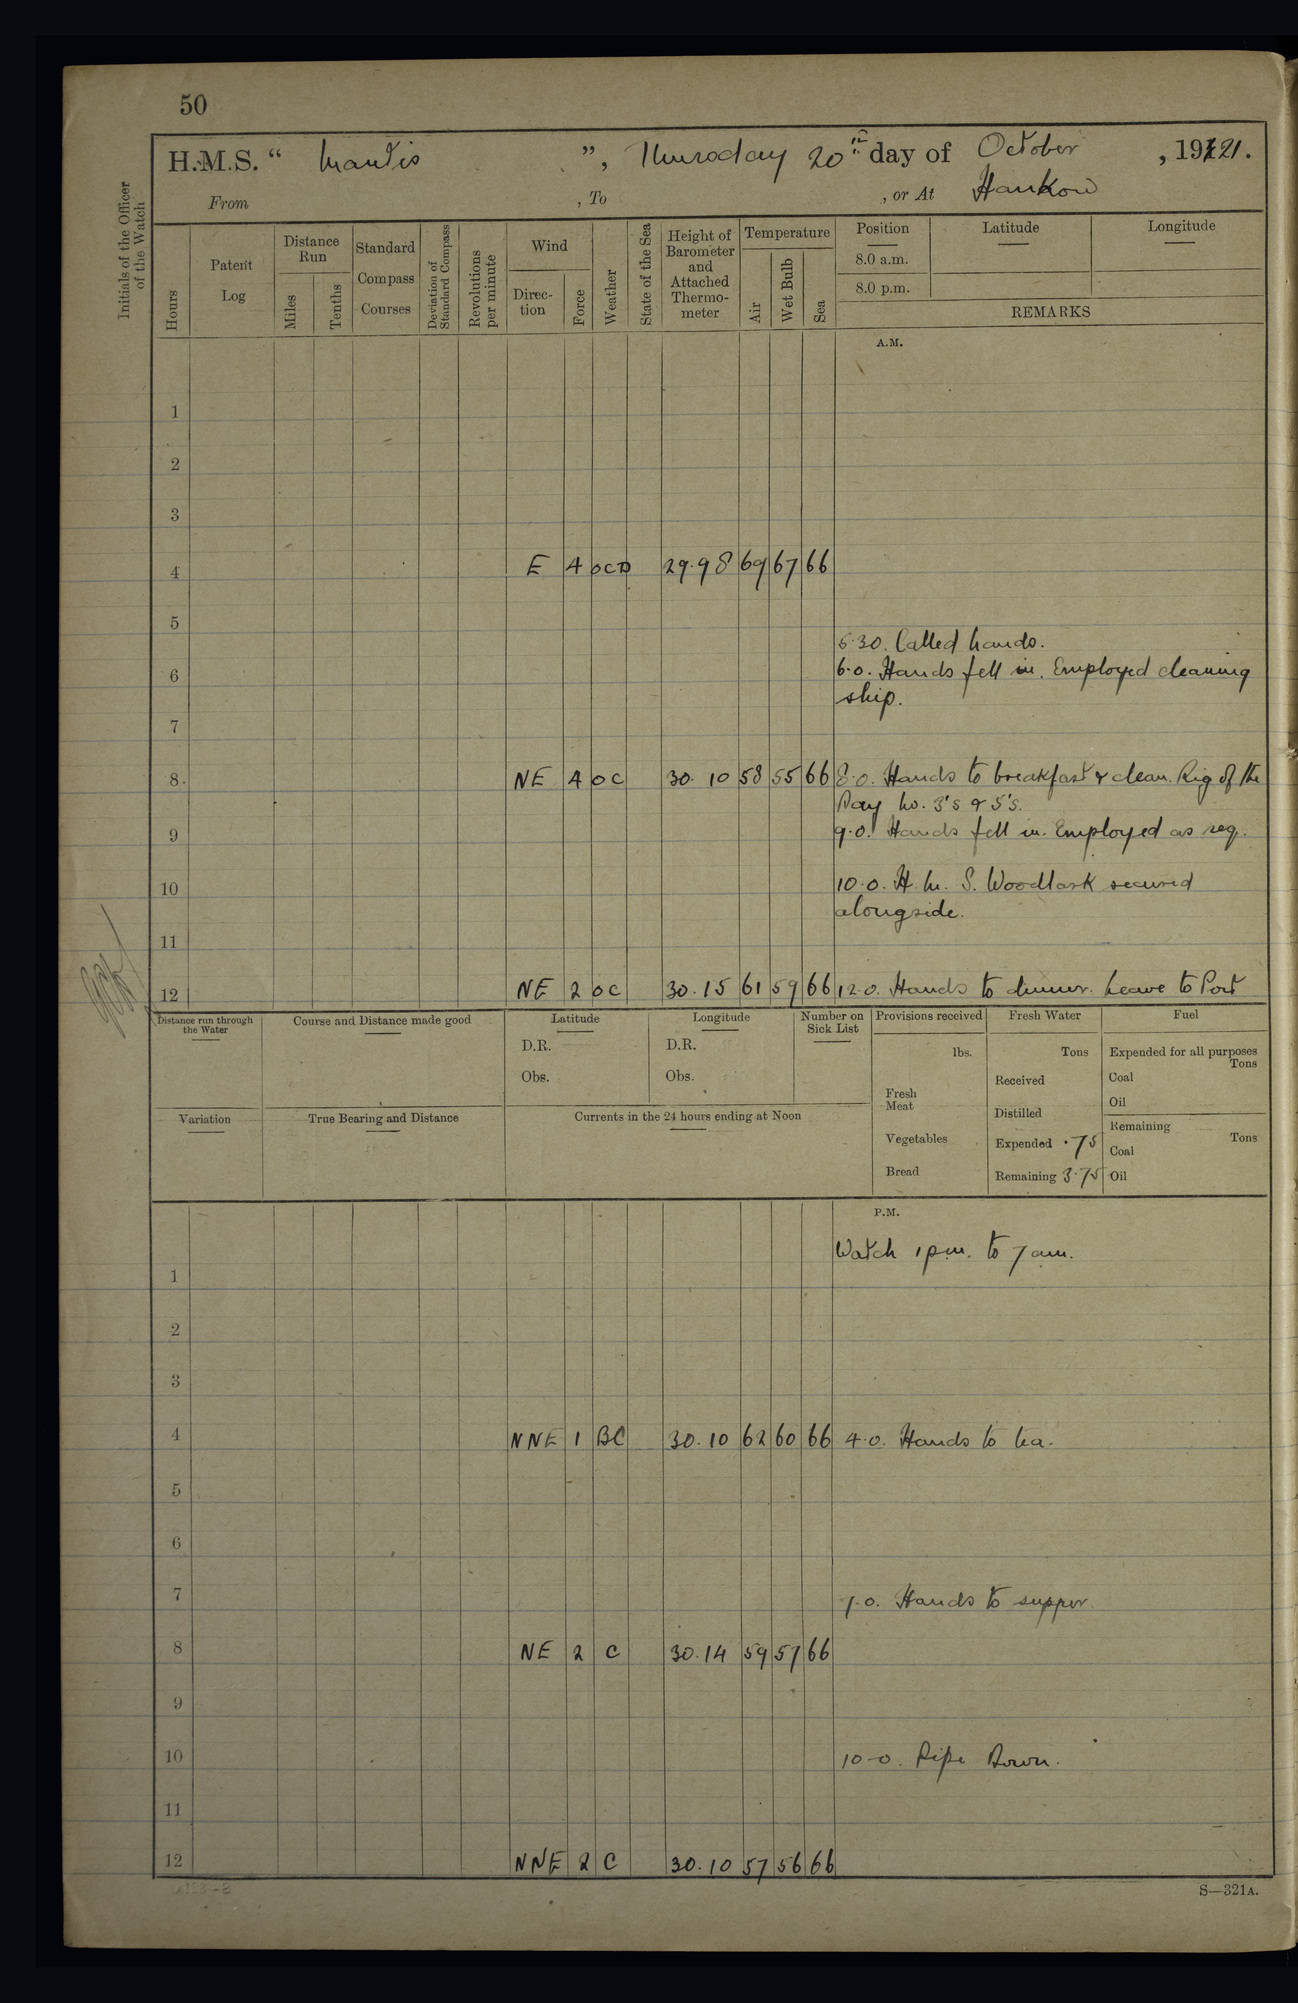 50
H.M.S. “ Mantis ”, Thursday 20th day of October , 1921.
From , To , or At Hankow
Initials of the Officer of the Watch
Hours
Patent Log
Distance Run
Miles
Tenths
Standard Compass Courses
Deviation of Standard Compass
Revolutions per minute
Wind
Direc-tion
Force
Weather
State of the Sea
Height of Barometer and Attached Thermo-meter
Temperature
Air
Wet Bulb
Sea
Position
8.0 a.m.
8.0 p.m.
Latitude
Longitude
REMARKS
A.M.
1
2
3
4 E 4 OCD 29.98 69 67 66
5
5.30. Called hands.
6 6.0. Hands fell in. Employed cleaning
ship.
7
8 NE 4 OC 30.10 58 55 66 8.0. Hands to breakfast & clean. Rig of the
Day No. 3's & 5's.
9 9.0. Hands fell in. Employed as req.
10 10.0. H.M.S. Woodlark secured
alongside.
11
12 NE 2 OC 30.15 61 59 66 12.0. Hands to dinner. Leave to Port
Distance run through the Water
Course and Distance made good
Latitude
D.R.
Obs.
Longitude
D.R.
Obs.
Number on Sick List
Provisions received
lbs.
Fresh Meat
Vegetables
Bread
Fresh Water
Tons
Received
Distilled
Expended .75
Remaining 3.75
Fuel
Expended for all purposes
Tons
Coal
Oil
Remaining
Tons
Coal
Oil
Variation
True Bearing and Distance
Currents in the 24 hours ending at Noon
P.M.
Watch 1 pm. to 7 am.
1
2
3
4 NNE 1 BC 30.10 62 60 66 4.0. Hands to tea.
5
6
7 7.0. Hands to supper
8 NE 2 C 30.14 59 57 66
9
10 10-0. Pipe Down.
11
12 NNE 2 C 30.10 57 56 66
S—321A.